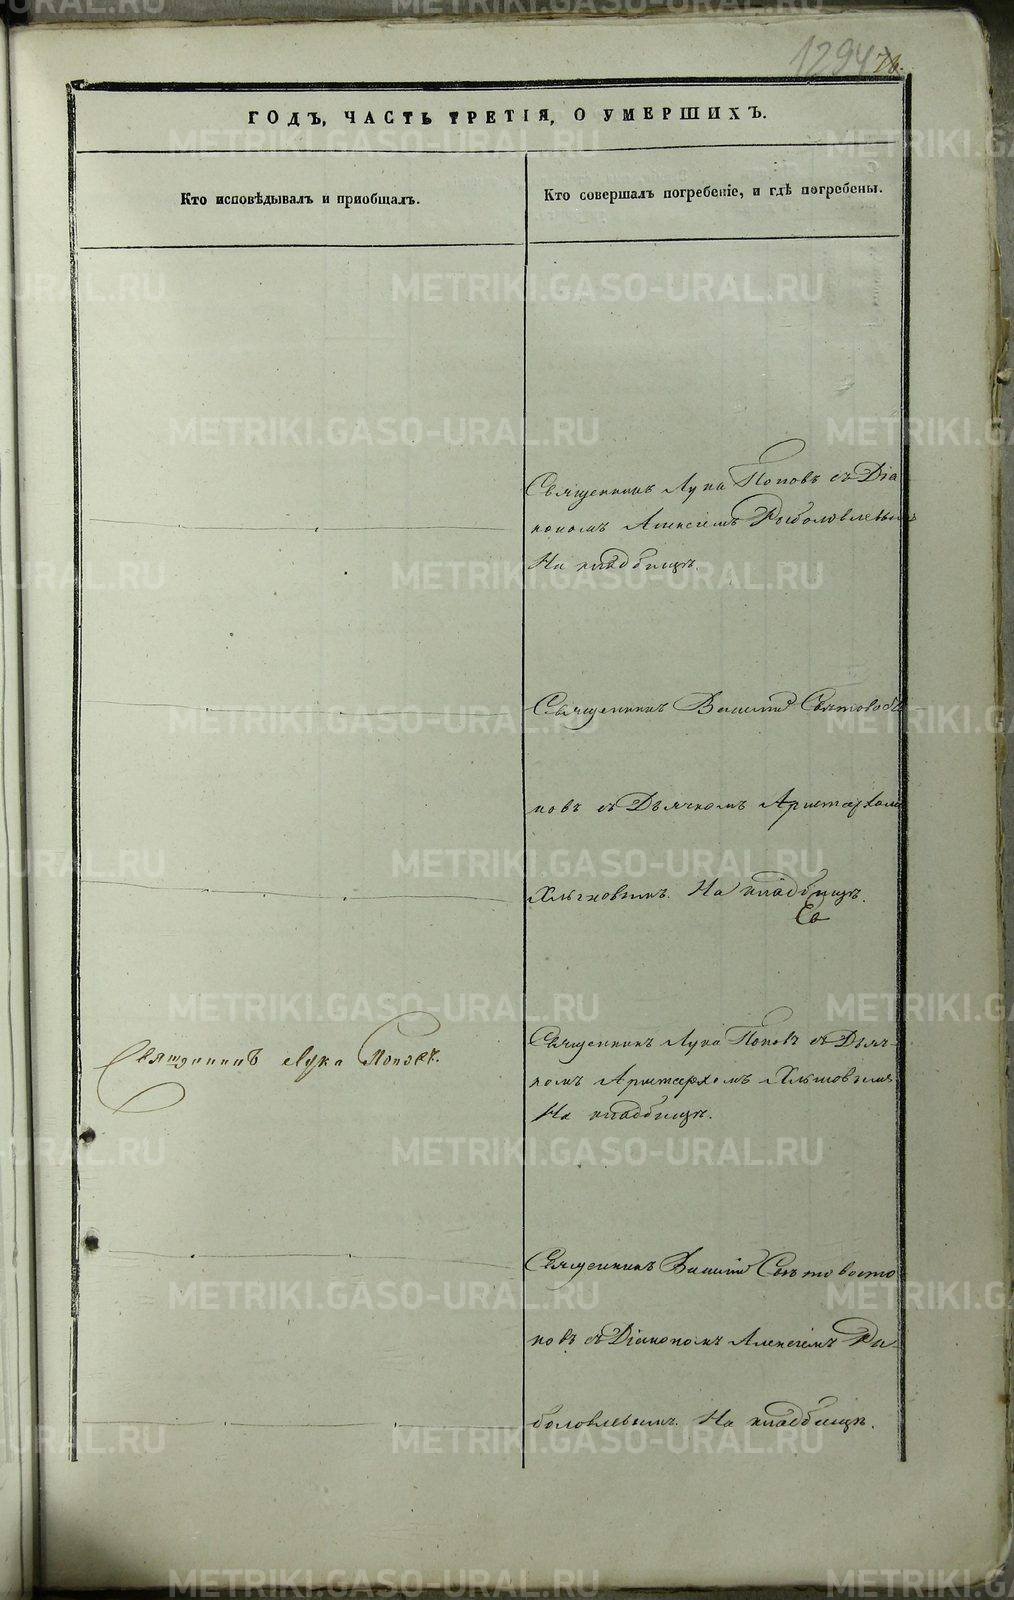 1294
76.
ГОДЪ, ЧАСТЬ ТРЕТІЯ, О УМЕРШИХЪ.
Кто исповѣдывалъ и пріобщалъ.
Кто совершалъ погребеніе, и гдѣ погребены.
Священникъ Лука Поповъ съ Діа
кономъ Алексіемъ Рыболовлевымъ
На кладбищѣ.
Священникъ Василій
новъ съ Дьячкомъ Аристархомъ
На кладбищѣ.
Священникъ Лука Поповъ.
Священникъ Лука Поповъ съ Дьяч-
комъ Аристархомъ
На кладбищѣ.
Священникъ Василій Святовосто
ковъ съ Діакономъ Алексіемъ Ры-
боловлевымъ. На кладбищѣ.
METRIKI.GASO-URAL.RU